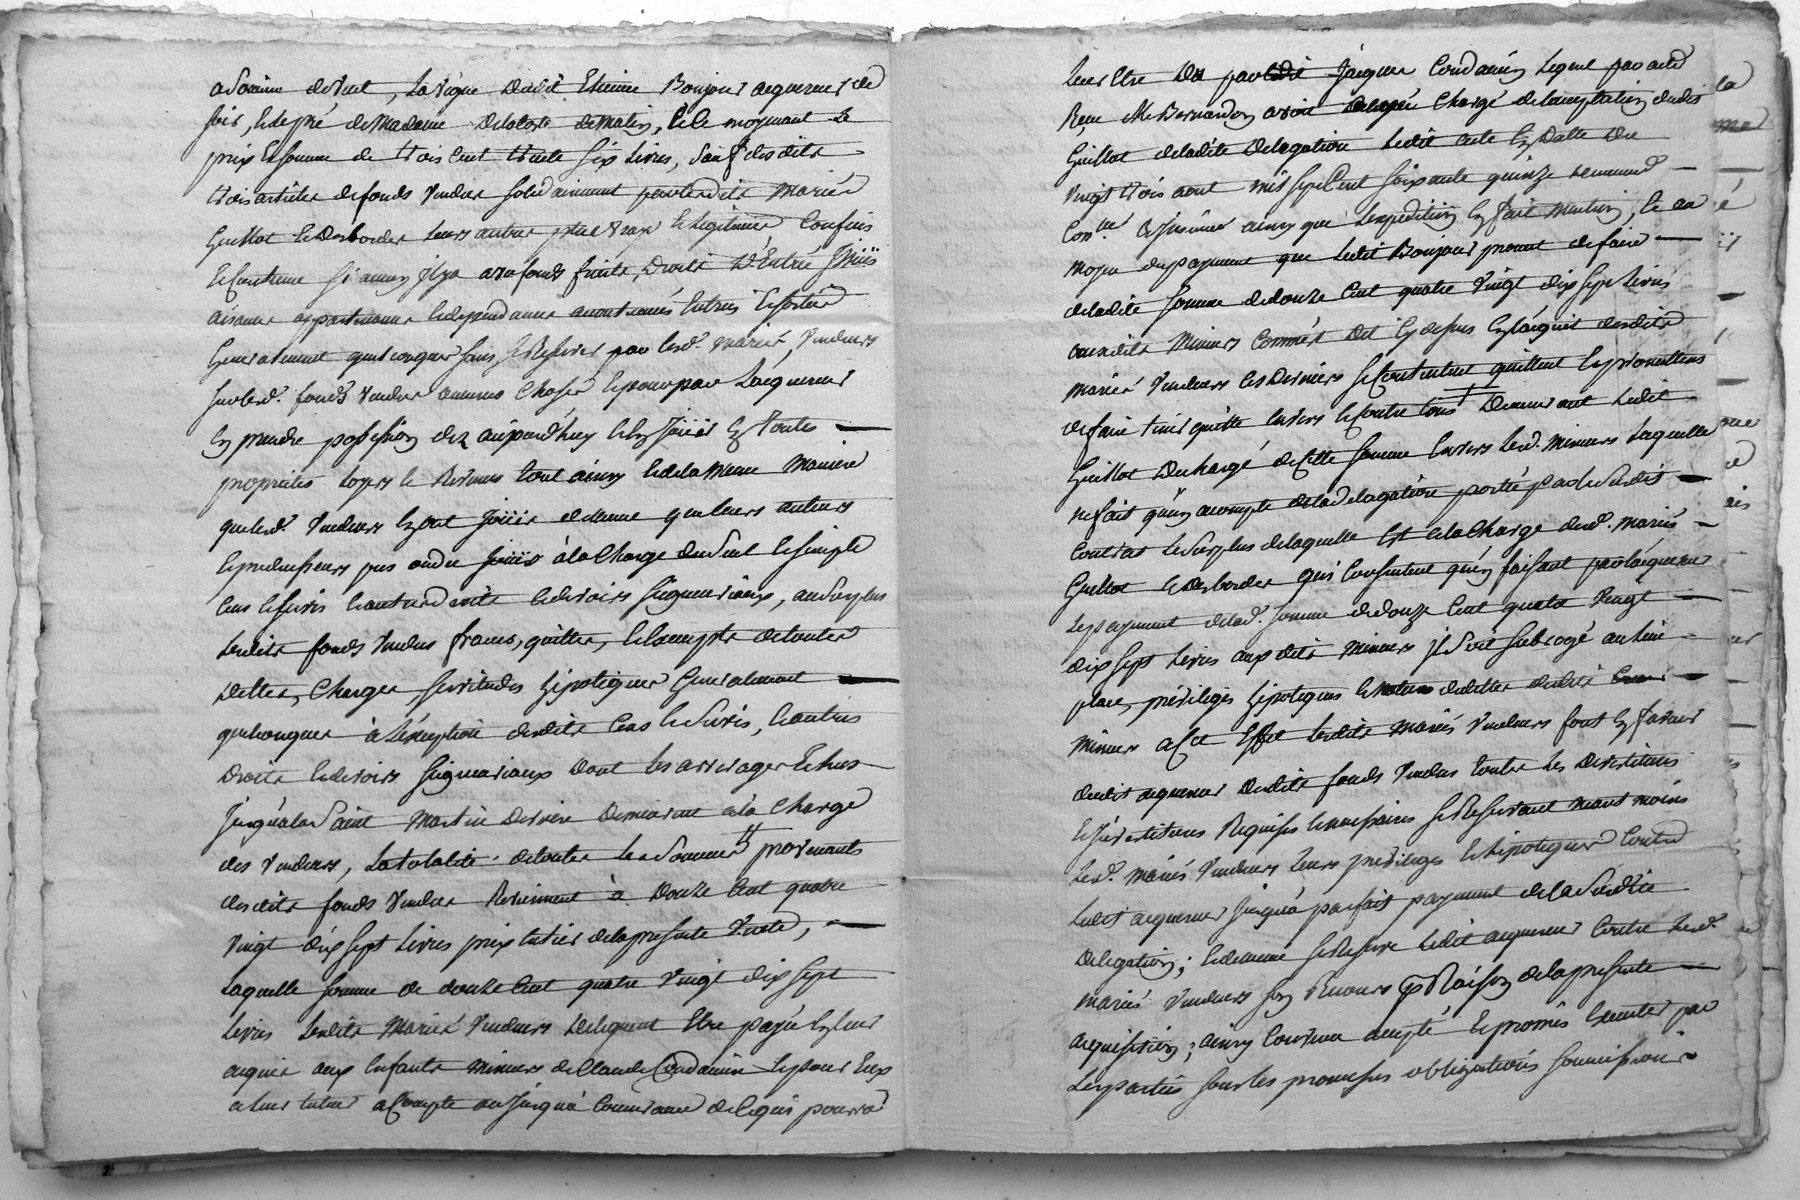 a Soeinne et Vent, La vigne Dudit Etienne Bonjour acquereur de
soir, le de pré de Madame Delacoste de matin, Et Ce moyenant Le
prix Et somme de trois Cent trente six Livres, sauf desdits
trois articles de fonds Vendus solidairement par lesdits Mariés
Guillot et Desbordes Leurs autres plus vrays Et Legitimes Confins
Et Contenue si aucuns il y a aux fonds fruits, Droits D'Entrée
aisances appartenances et dependances Entrées Et sorties
Generalement quelconques sans se Reserver par lesd. mariés, Vendeurs
sur lesd. fonds Vendus aucunes Choses Et pour par L'acquereur
En prendre possession dez aujourd'huy Et En Joüir En Toutes
proprietés Loyers Et Revenus tout ainsy Et de la Meme Maniere
que lesd. Vendeurs En ont Joüis et deume que leurs auteurs
Et predecesseurs pus ou du Joüir à la Charge du Seul Et simple
Cens Et servis Et autres droits Et devoirs Seigneuriaux, au Surplus
Lesdits fonds Vendus francs, quittes, Et Exempts de toutes
Dettes, Charges servitudes hipoteques Generalement
quelconques à L'exeption desdits Cens Et Servis, Et autres
Droits Et devoirs Seigneuriaux Dont Les arrerages Echus
Jusqu'à la Saint Martin Derniere Demeurent à la Charge
des Vendeurs, La totalité de toutes Les Sommes provenants
desdits fonds Vendus Reviennent à Douze Cent quatre
Vingt dix sept Livres prix Entier de la presente Vente,
Laquelle somme de douze Cent quatre Vingt dix sept
Livres Lesdits Mariés Vendeurs Deleguent Etre payée En leur
acquit aux Enfants Mineurs de Claude Condamin Et pour Eux
a leur tuteur a Compte ou Jusqu'à Concurrance de Ce qui pourra
Leur Etre Du par Jacques Condamin Lequel par acte
Reçu Me Bernardon avoit Chargé de L'acceptation dudit
Guillot de ladite Delegation Ledit acte En Datte Du
Vingt trois aout mil sept Cent soixante quinze
Con.lé Et Insinué ainsy que L'expedition En fait mention, Et au
moyen du payement que Ledit Bonjour promet de faire
de ladite somme de douze Cent quatre Vingt dix sept Livres
auxdits Mineurs Comme est Dit Cy dessus En L'acquit desdits
Mariés Vendeurs Ces Derniers se Contentent quittent Et promettent
de faire tenir quitte Envers Et Contre tous Demeurant Ledit
Guillot Dechargé de Cette somme Envers Lesd. Mineurs Laquelle
ne fait qu'un acompte de la Delagation portée par le Susdit
Contrat Le Surplus de laquelle Est à la Charge desd. Mariés
Guillot Et Desbordes qui Consentent qu'en faisant par L'acquereur
Le payement de lad. somme de douze Cent quatre Vingt
dix sept Livres aux dits Mineurs il Soit Subrogé au Lieu
place, privileges hipoteques desdits
Mineurs a Cet Effet Lesdits Mariés Vendeurs font En faveur
dudit acquereur Desdits fonds Vendus toutes Les Devestitures
Et Investitures Requises Et necessaires se Reservant neant moins
Lesd. Mariés Vendeurs Leurs privileges Et hipoteques Contre
Ledit acquereur Jusqu'à parfait payement de la Susdite
Delegation; Et de meme se Reserve Ledit acquereur Contre Lesd.
Mariés Vendeurs son Recours Raison de la presente
acquisition; ainsy Convenu accepté Et promis Executer par
Les parties sous les promesses obligations soumissions